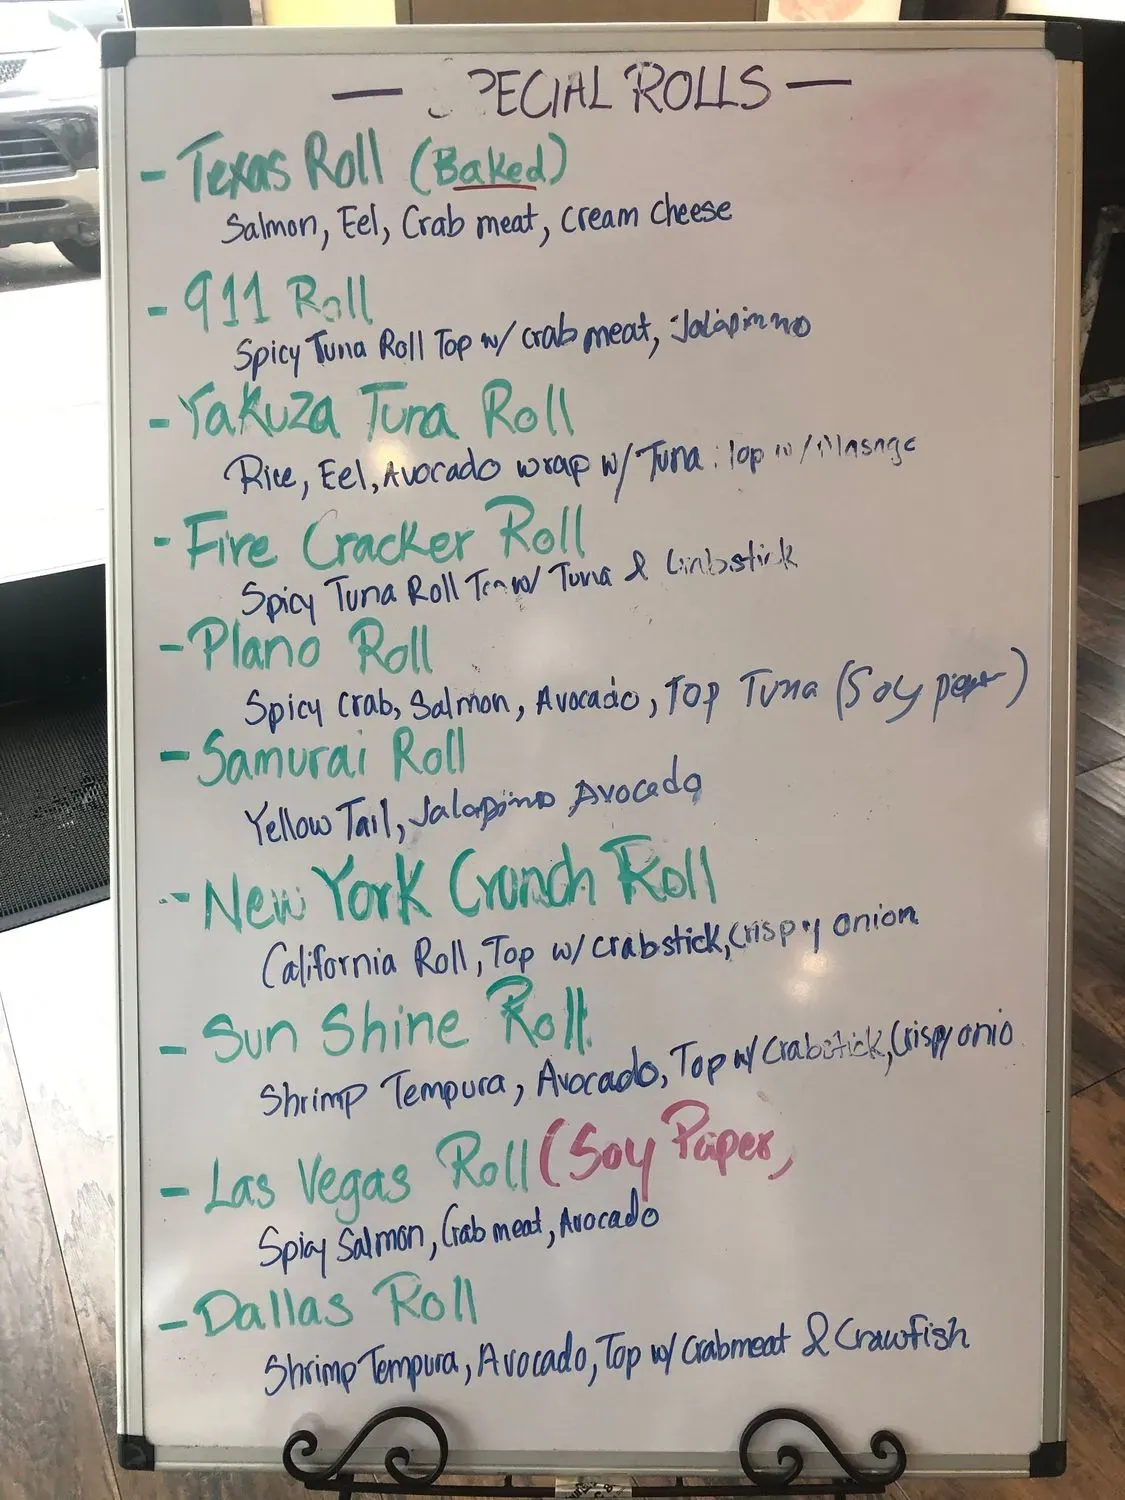 — SPECIAL ROLLS —
- Texas Roll (Baked)
Salmon, Eel, Crab meat, cream cheese
- 911 Roll
Spicy Tuna Roll Top w/ crab meat, Jalapinno
- Yakuza Tuna Roll
Rice, Eel, Avocado wrap w/ Tuna Top w/
- Fire Cracker Roll
Spicy Tuna Roll Top w/ Tuna &
- Plano Roll
Spicy crab, Salmon, Avocado, Top Tuna (Soy paper)
- Samurai Roll
Yellow Tail, Jalapino Avocado
- New York Crunch Roll
California Roll, Top w/ crabstick, Crispy onion
- Sun Shine Roll
Shrimp Tempura, Avocado, Top w/ Crabstick, Crispy onio
- Las Vegas Roll (Soy Paper)
Spicy Salmon, Crab meat, Avocado
- Dallas Roll
Shrimp Tempura, Avocado, Top w/ Crabmeat & Crawfish